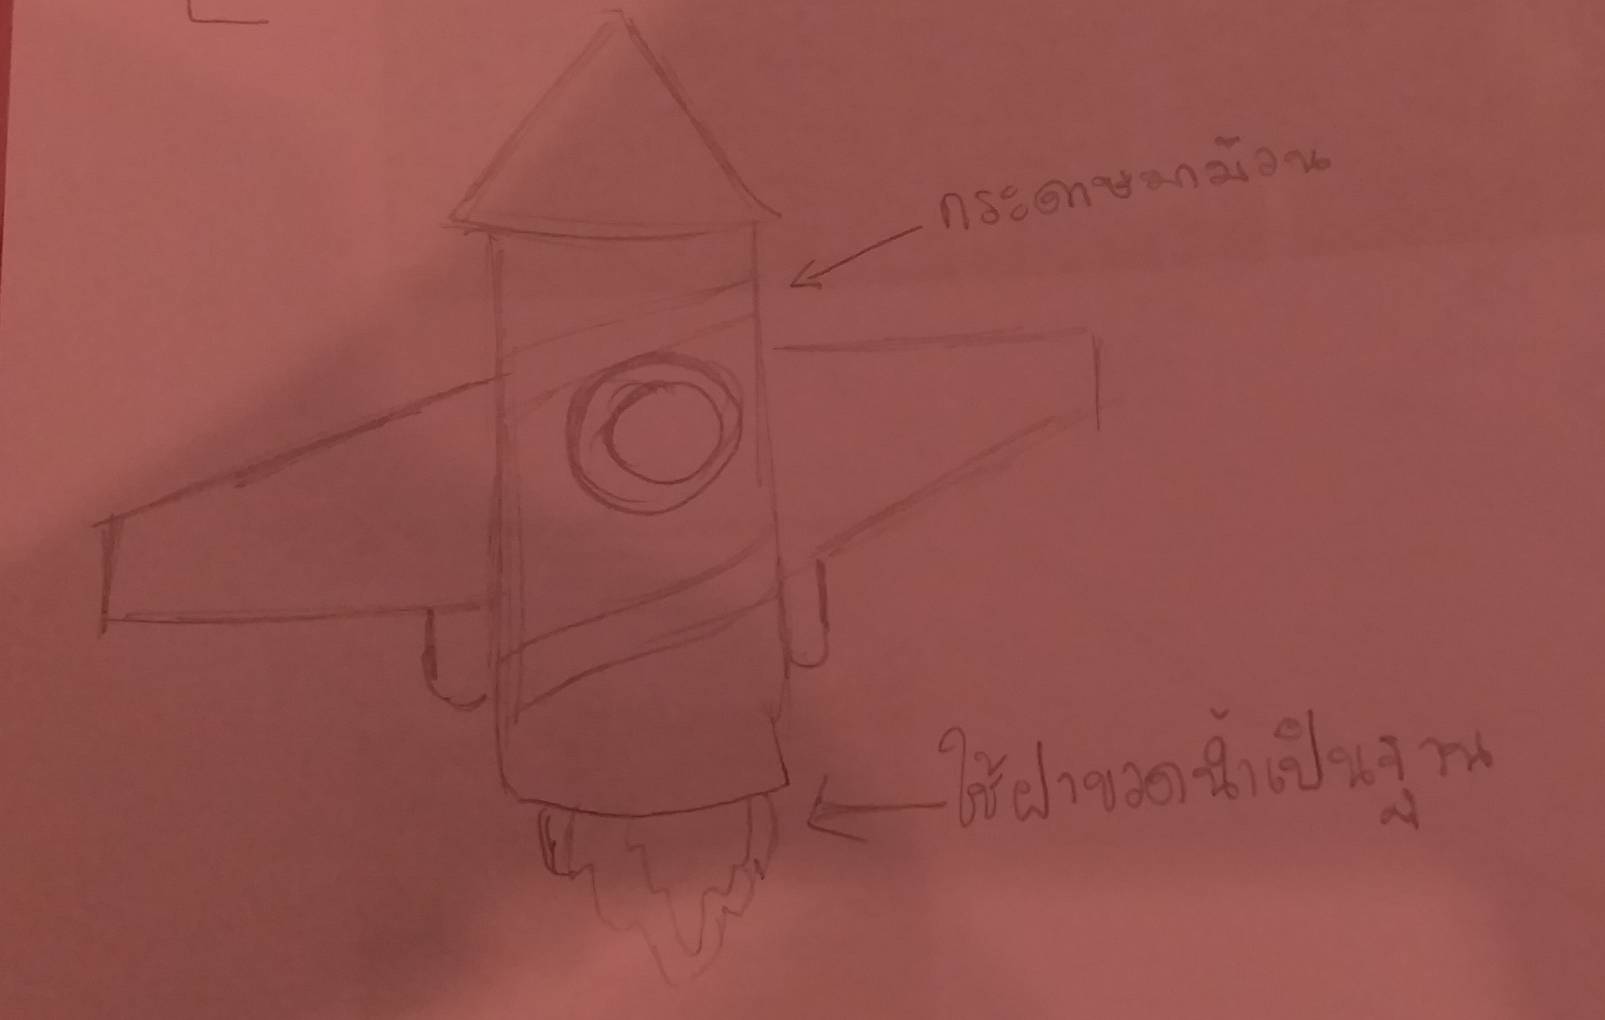 กระดาษมาม้วน
ใช้ฝาขวดน้ำเป็นฐาน